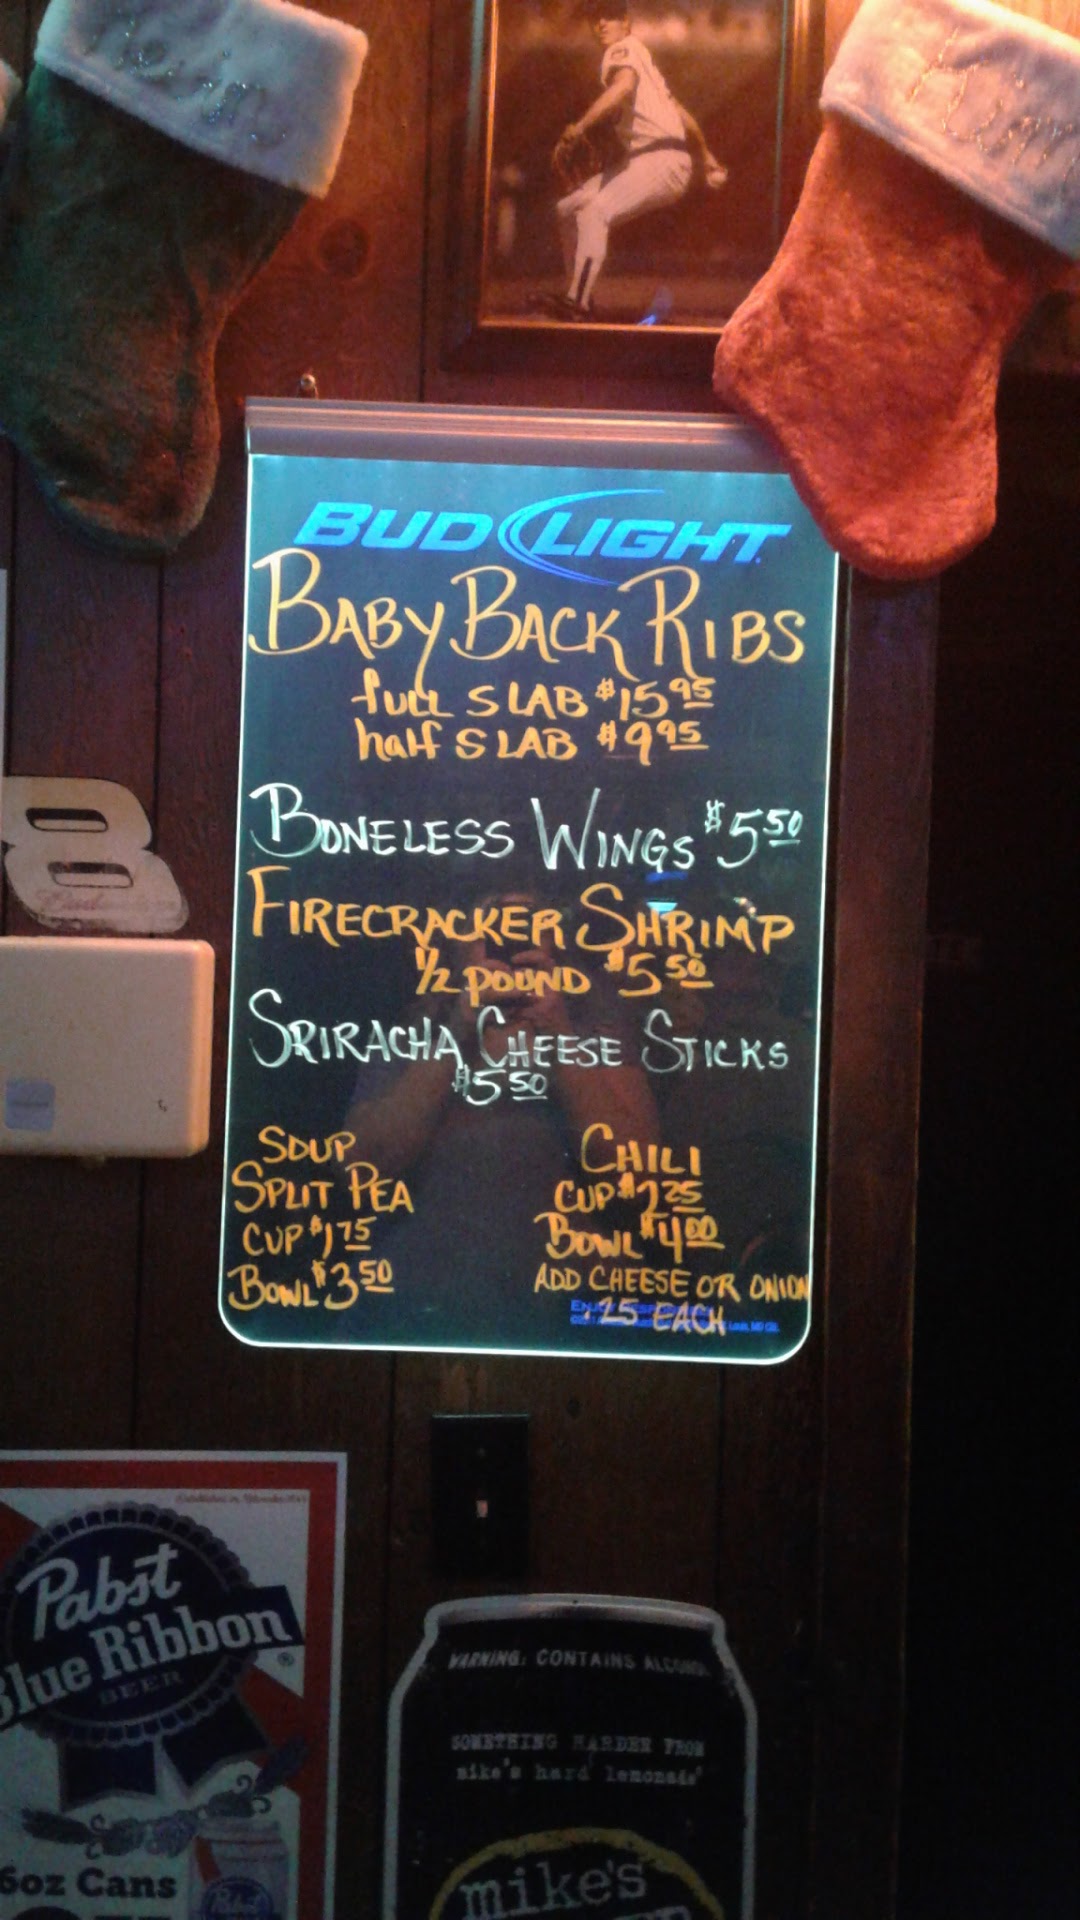 BUD LIGHT
BABY BACK RIBS
full SLAB $15 95
half SLAB $9 95
BONELESS WINGS $5 50
FIRECRACKER SHRIMP
1/2 POUND $5 50
SRIRACHA CHEESE STICKS
$5 50
SOUP
SPLIT PEA
CUP $1 75
BOWL $3 50
CHILI
CUP $2 25
BOWL $4 00
ADD CHEESE OR ONION
.25 EACH
8
Pabst
Blue Ribbon
BEER
6oz Cans
Pabst
WARNING: CONTAINS ALCOHOL
SOMETHING HARDER FROM
mike's hard lemonade
mike's